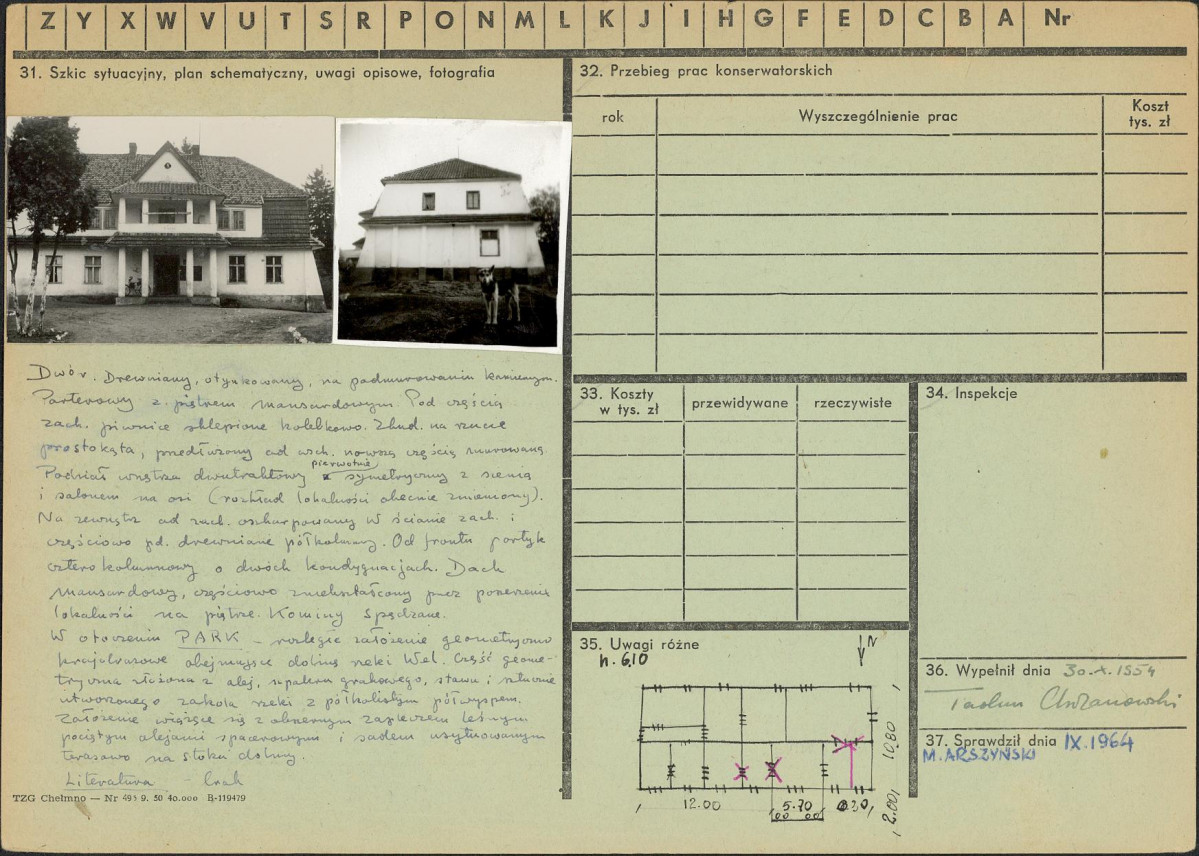 Z Y X W V U T S R P O N M L K J I H G F E D C B A Nr
31. Szkic sytuacyjny, plan schematyczny, uwagi opisowe, fotografia
Dwór. Drewniany, otynkowany, na podmurowaniu kamiennym.
Parterowy z piętrem mansardowym. Pod częścią
zach. piwnice sklepione kolebkowo. Zbud. na rzucie
prostokąta, przedłużony od wsch. nowszą częścią murowaną.
Podział wnętrza dwutraktowy pierwotnie symetryczny z sienią
i salonem na osi (rozkład lokalności obecnie zmieniony).
Na zewnątrz od zach. oszkarpowany w ścianie zach. i
częściowo pd. drewniane półkolumny. Od frontu portyk
czterokolumnowy o dwóch kondygnacjach. Dach
mansardowy, częściowo zniekształcony przez
lokalności na piętrze. Kominy spędzane.
W otoczeniu PARK - rozległe założenie geometryczno
krajobrazowe obejmujące dolinę rzeki Wel. Część geome-
tryczna złożona z alej, szpaleru grabowego, stawu i sztucznie
utworzonego zakola rzeki z półkolistym półwyspem.
Założenie wiążące się z obszernym zapleczem leśnym
pociętym alejami spacerowymi i sadem usytuowanym
tarasowo na stoku doliny.
Literatura - brak
TZG Chełmno — Nr 495 9. 50 40.000 B-119479
32. Przebieg prac konserwatorskich
rok
Wyszczególnienie prac
Koszt
tys. zł
33. Koszty
w tys. zł
przewidywane
rzeczywiste
34. Inspekcje
35. Uwagi różne
n. 610
N
12.00
5.70
10.80
2.00
36. Wypełnił dnia 30.X.1954
Tadeusz Chrzanowski
37. Sprawdził dnia IX.1964
M. ARSZYŃSKI